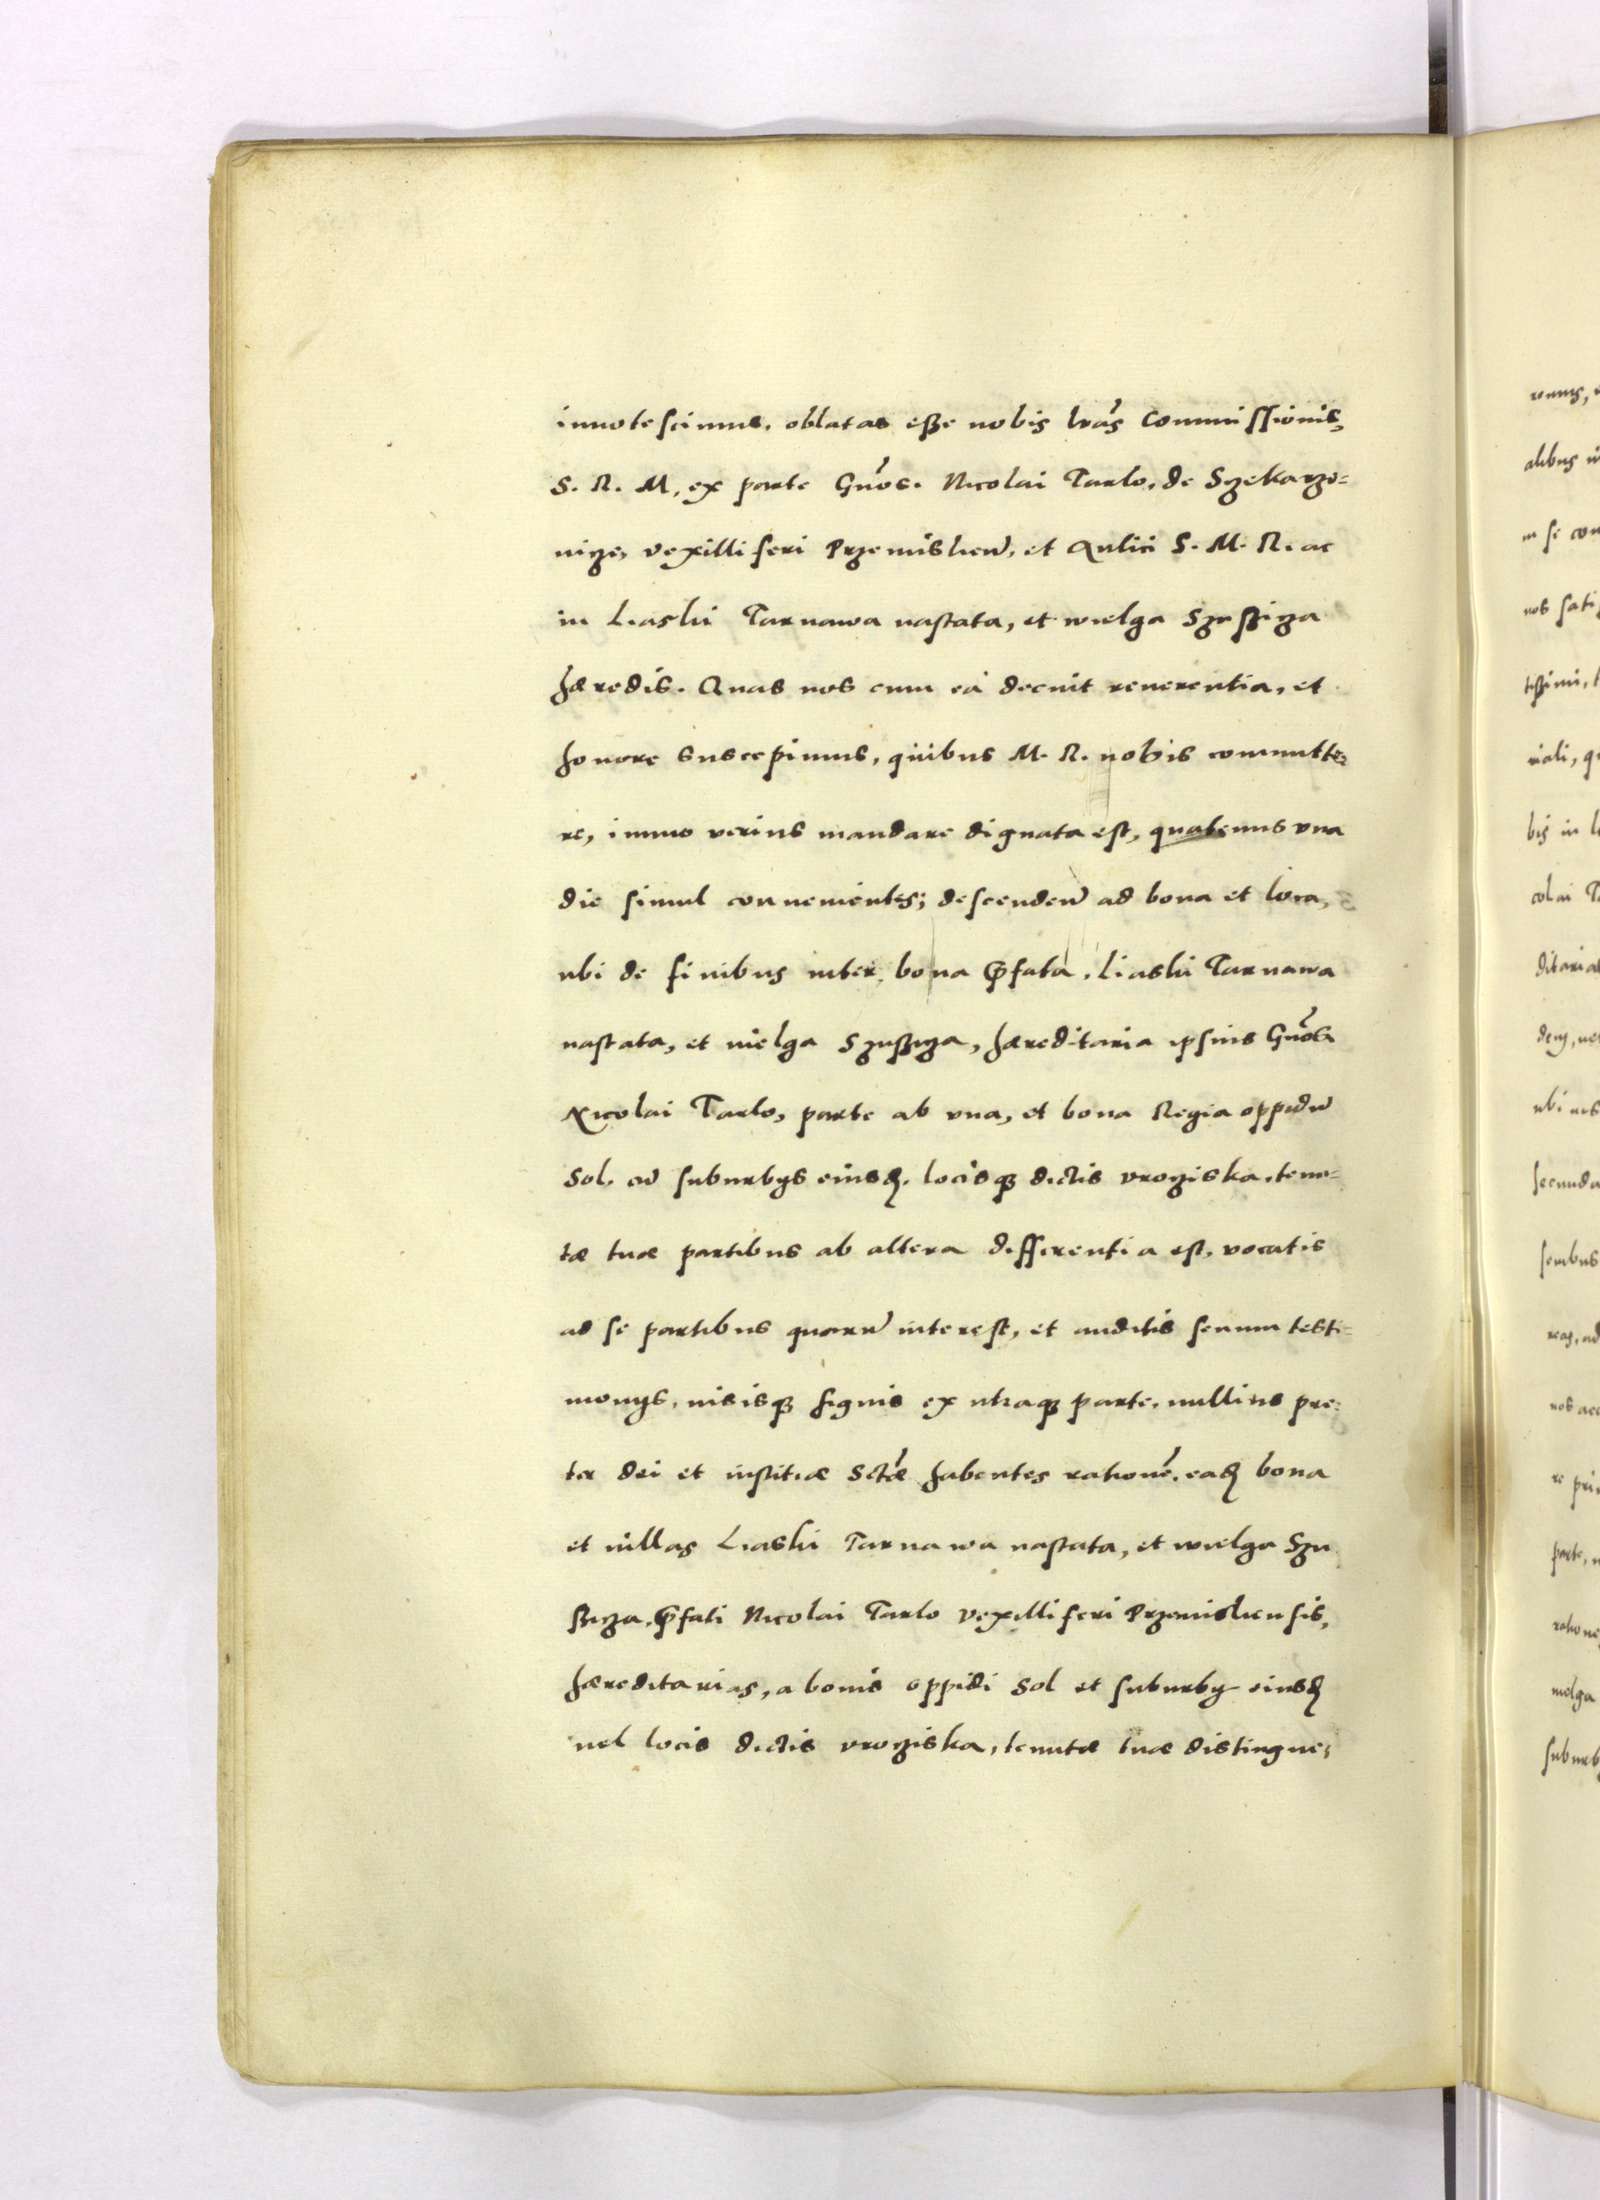 innotescimus. oblatas eße nobis lrãs Commissionis,
S. R. M, ex parte Gñosi. Nicolai Tarlo, de Szekarzo=
wize, vexilliferi Przemislien̄, et Aulici S. M. R. ac
in Liaski Tarnawa nastata, et wielga Szußiza
hæredis. Quas nos cum eá decuit reuerentia, et
honore suscepimus, quibus M. R. nobis committe,
re, immo verius mandare dignata est, quatenus vna
die simul conuenientes; descenden̄ ad bona et loca,
ubi de finibus inter bona p̄fata, Liaski Tarnawa
nastata, et uielga Szußiza, hæreditaria ipsius Gñosi
Nicolai Tarlo, parte ab vna, et bona Regia oppidū
Sol. cū suburbys eiusdꝫ. locisqꝫ dictis vroziska, tenu=
tæ tuæ partibus ab altera differentia est, vocatis
ad se partibus quarū interest, et auditis senum testi=
monys, uisisqꝫ signis ex utraqꝫ parte, nullius pre=
ter dei et iustitiæ Sctæ habentes rationē, eadꝫ bona
et uillas Liaski Tarnawa nastata, et wielga Szu
ßiza, p̄fati Nicolai Tarlo Vexilliferi Przemisliensis,
hæreditarias, a bonis oppidi Sol et suburby eiusdꝫ
uel locis dictis vroziska, tenutæ tuæ distingue,
alibus
nos
bis in
colai
ubi
secunda
parte,